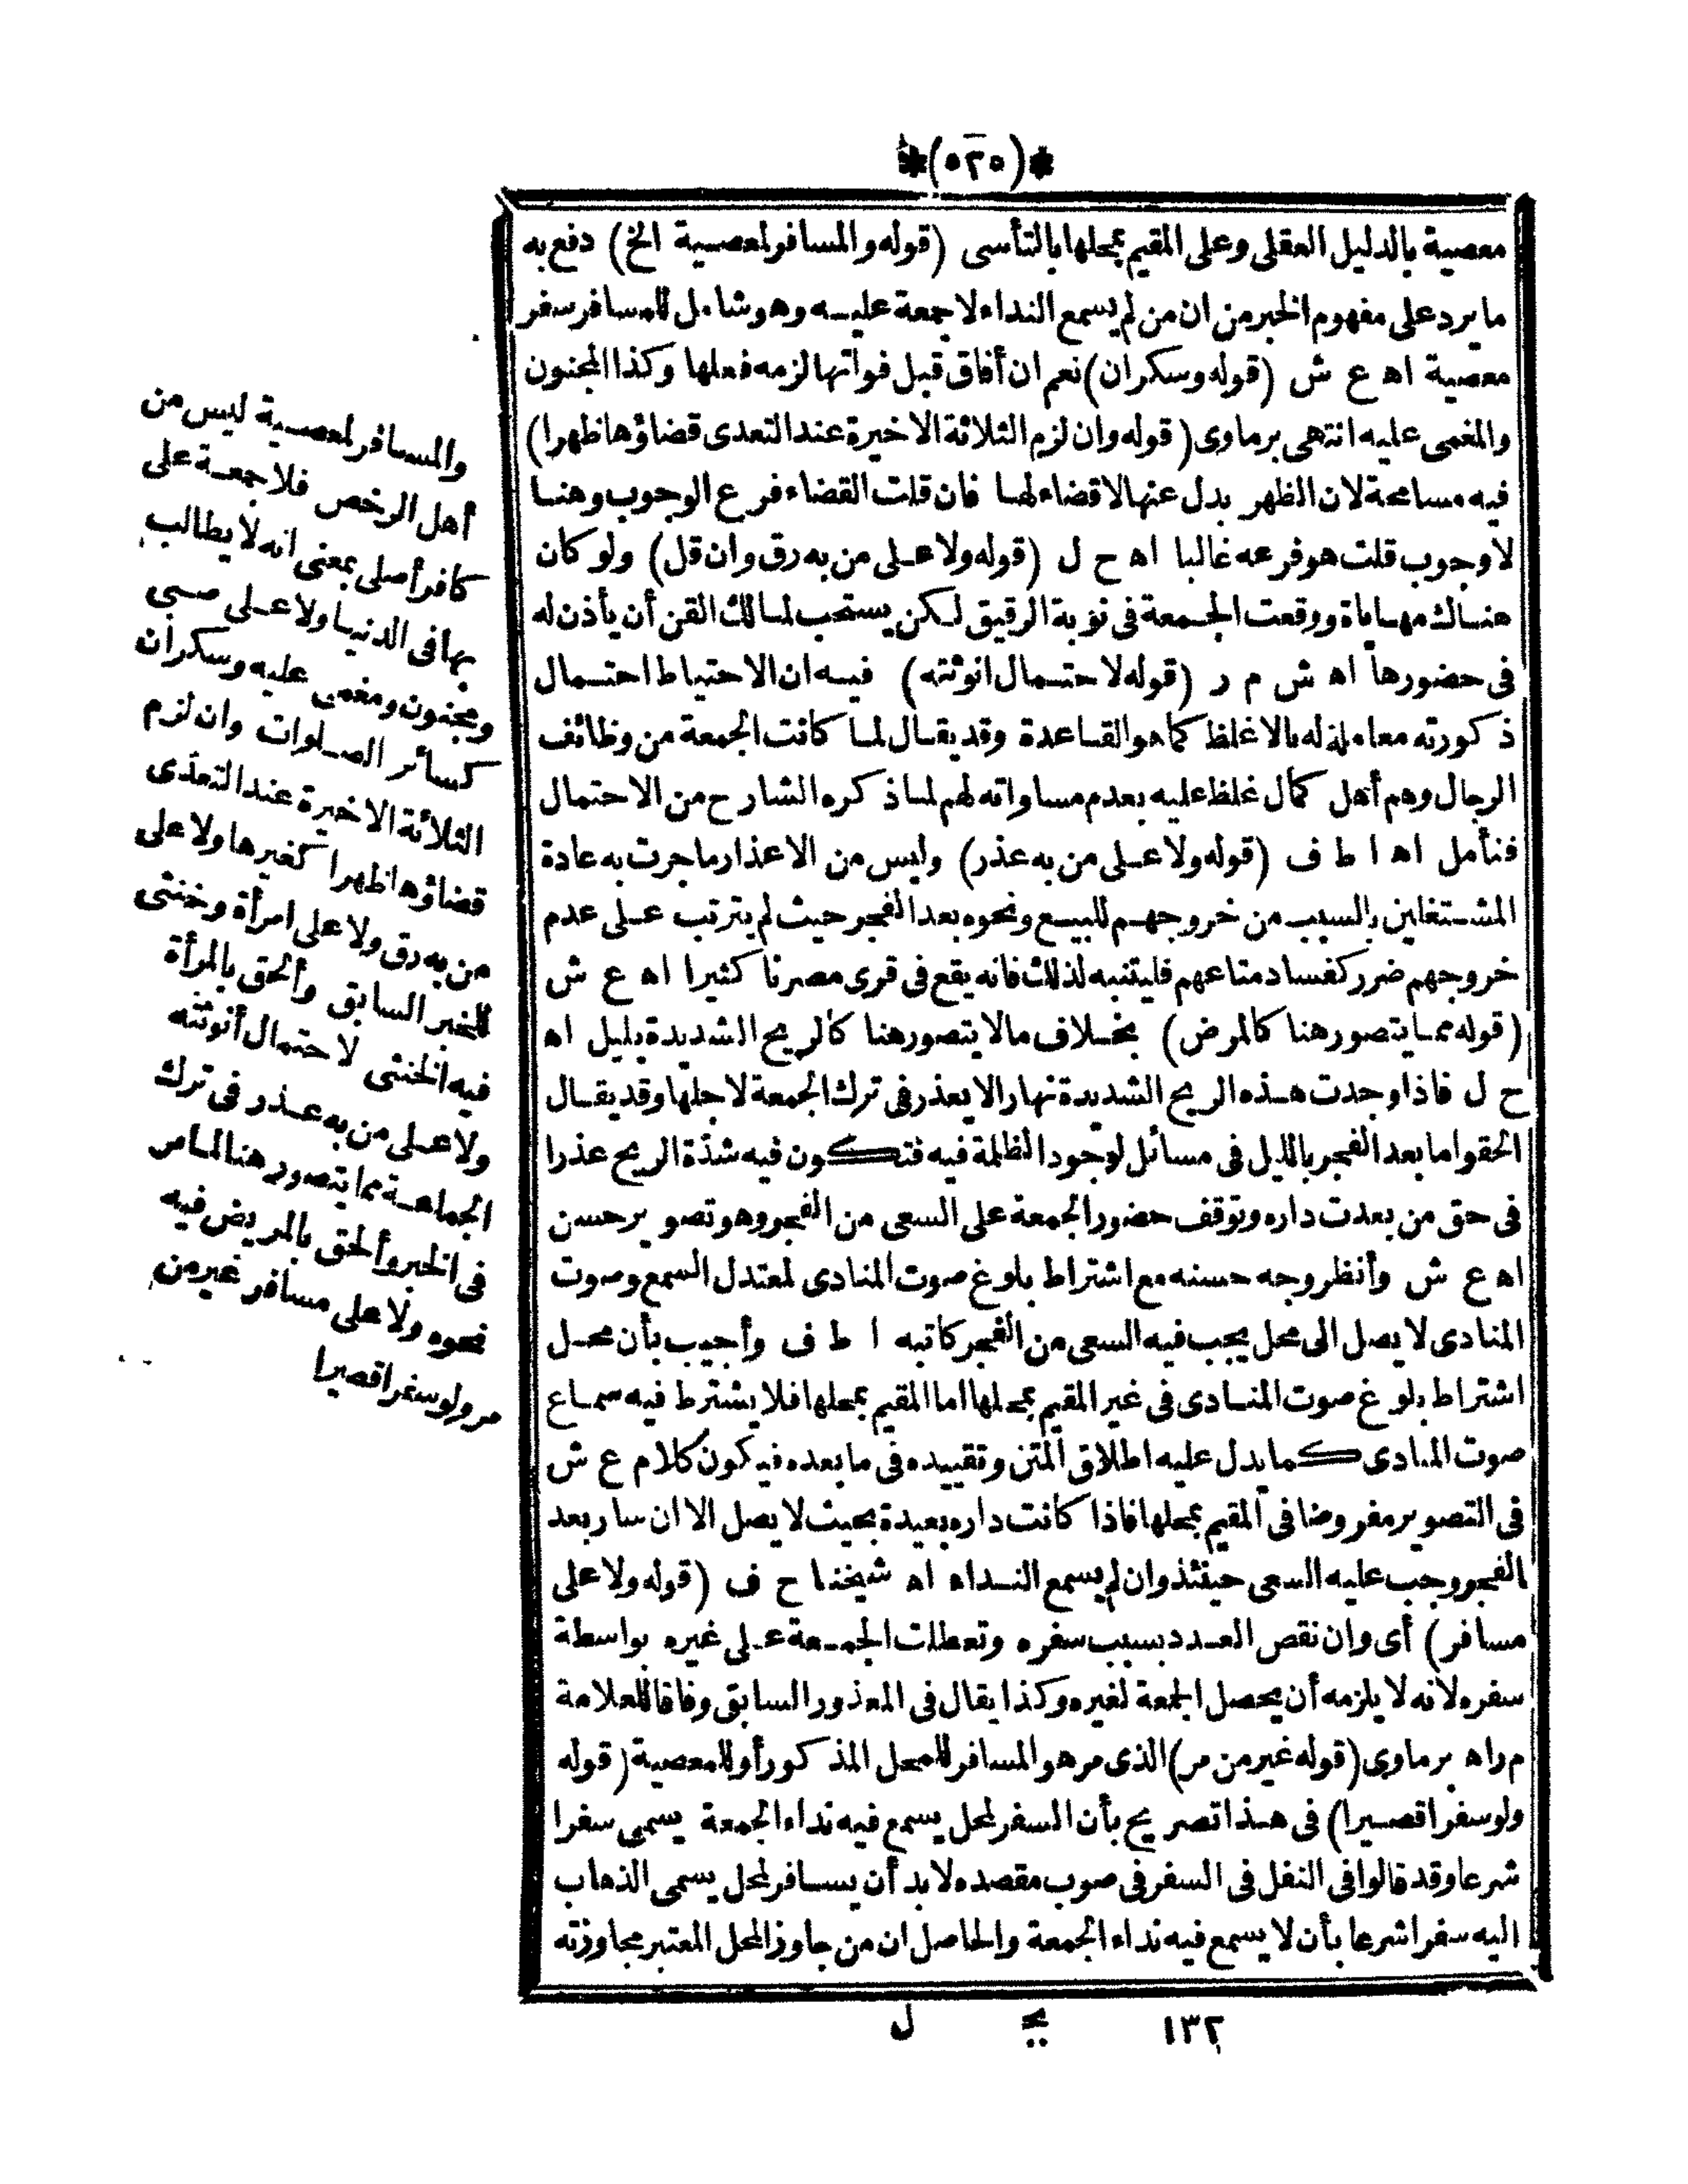 *(٥٢٥)*
معصية بالدليل العقلى وعلى المقيم بمحلها بالتأسى (قوله والمسافر لمعصية الخ) دفع به
ما يرد على مفهوم الخبر من ان من لم يسمع النداء لا جمعة عليه وهو شامل للمسافر سفر
معصية اه ع ش (قوله وسكران) نعم ان أفاق قبل فواتها لزمه فعلها وكذا المجنون
والمغمى عليه انتهى برماوى (قوله وان لزم الثلاثة الاخيرة عند التعدى قضاؤها ظهرا)
فيه مسامحة لان الظهر بدل عنها لا قضاء لها فان قلت القضاء فرع الوجوب وهنا
لا وجوب قلت هو فرعه غالبا اه ح ل (قوله ولا على من به رق وان قل) ولو كان
هناك مهاياة ووقعت الجمعة فى نوبة الرقيق لكن يستحب لمالك القن أن يأذن له
فى حضورها اه ش م ر (قوله لاحتمال انوثته) فيه ان الاحتياط احتمال
ذكورته معاملة له بالاغلظ كما هو القاعدة وقد يقال لما كانت الجمعة من وظائف
الرجال وهم أهل كمال غلظ عليه بعدم مساواته لهم لما ذكره الشارح من الاحتمال
فتأمل اه ا ط ف (قوله ولا على من به عذر) وليس من الاعذار ما جرت به عادة
المشتغلين بالسبب من خروجهم للبيع ونحوه بعد الفجر حيث لم يترتب على عدم
خروجهم ضرر كفساد متاعهم فليتنبه لذلك فانه يقع فى قرى مصرنا كثيرا اه ع ش
(قوله مما يتصور هنا كالمرض) بخلاف ما لا يتصور هنا كالريح الشديدة بليل اه
ح ل فاذا وجدت هذه الريح الشديدة نهارا لا يعذر فى ترك الجمعة لاجلها وقد يقال
الحقوا ما بعد الفجر بالليل فى مسائل لوجود الظلمة فيه فتكون فيه شدة الريح عذرا
فى حق من بعدت داره وتوقف حضور الجمعة على السعى من الفجر وهو تصوير حسن
اه ع ش وأنظر وجه حسنه مع اشتراط بلوغ صوت المنادى لمعتدل السمع وصوت
المنادى لا يصل الى محل يجب فيه السعى من الفجر كاتبه ا ط ف وأجيب بأن محل
اشتراط بلوغ صوت المنادى فى غير المقيم بمحلها اما المقيم بمحلها فلا يشترط فيه سماع
صوت المنادى كما يدل عليه اطلاق المتن وتقييده فى ما بعده فيكون كلام ع ش
فى التصوير مفروضا فى المقيم بمحلها فاذا كانت داره بعيدة بحيث لا يصل الا ان سار بعد
الفجر وجب عليه السعى حينئذ وان لم يسمع النداء اه شيخنا ح ف (قوله ولا على
مسافر) أى وان نقص العدد بسبب سفره وتعطلت الجمعة على غيره بواسطة
سفره لانه لا يلزمه أن يحصل الجمعة لغيره وكذا يقال فى المعذور السابق وفاقا للعلامة
م ر اه برماوى (قوله غير من مر) الذى مر هو المسافر للمحل المذكور أو للمعصية (قوله
ولو سفرا قصيرا) فى هذا تصريح بأن السفر لمحل يسمع فيه نداء الجمعة يسمى سفرا
شرعا وقد قالوا فى النفل فى السفر فى صوب مقصده لا بد أن يسافر لمحل يسمى الذهاب
اليه سفرا شرعا بأن لا يسمع فيه نداء الجمعة والحاصل ان من جاوز المحل المعتبر مجاوزته
والمسافر لمعصية ليس من
أهل الرخص فلا جمعة على
كافر أصلى بمعنى انه لا يطالب
بها فى الدنيا ولا على صبى
ومجنون ومغمى عليه وسكران
كسائر الصلوات وان لزم
الثلاثة الاخيرة عند التعدى
قضاؤها ظهرا كغيرها ولا على
من به رق ولا على امرأة وخنثى
للخبر السابق وألحق بالمرأة
فيه الخنثى لاحتمال أنوثته
ولا على من به عذر فى ترك
الجماعة مما يتصور هنا لما مر
فى الخبر وألحق بالمريض فيه
نحوه ولا على مسافر غير من
مر ولو سفرا قصيرا
١٣٢ بج ل